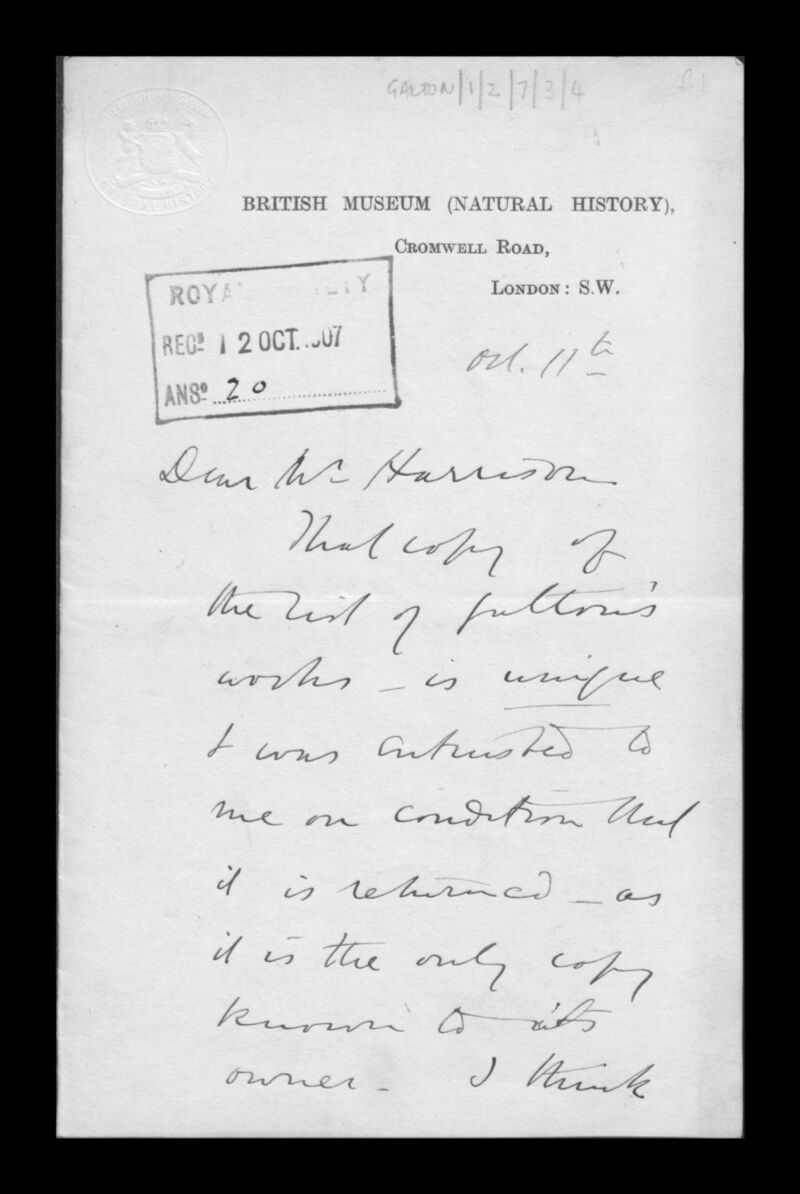 GALTON/1/2/7/3/4
f.1
BRITISH MUSEUM
NATURAL HISTORY
BRITISH MUSEUM (NATURAL HISTORY),
CROMWELL ROAD,
LONDON: S.W.
ROYA ETY
RECD 12 OCT. 07
ANSD 20
Oct. 11th
Dear Mr Harrison
That copy of
the list of Galton's
works – is unique
& was entrusted to
me on condition that
it is returned – as
it is the only copy
known to its
owner – I think